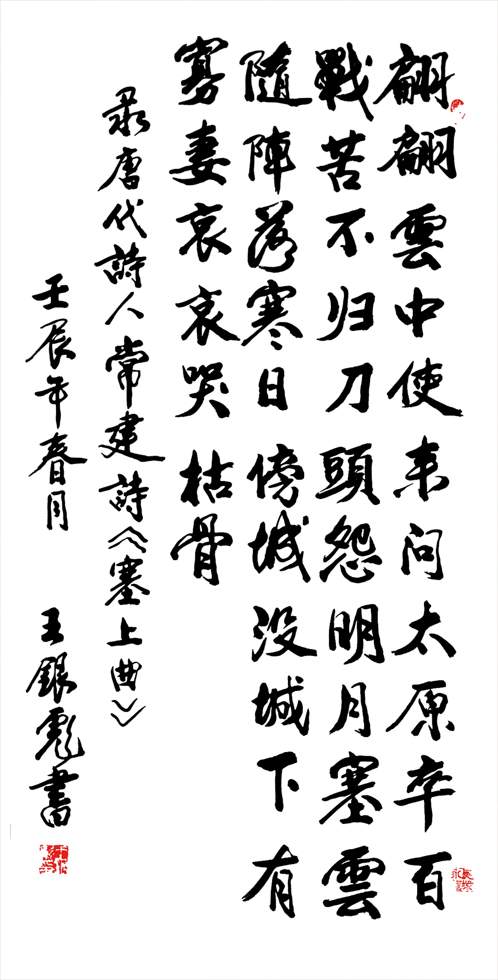 翩翩雲中使来问太原卒百
戰苦不归刀頭怨明月塞雲
隨陣落寒日傍城没城下有
寡妻哀哀哭枯骨
录唐代詩人常建詩《塞上曲》
壬辰年春月 王銀彪書